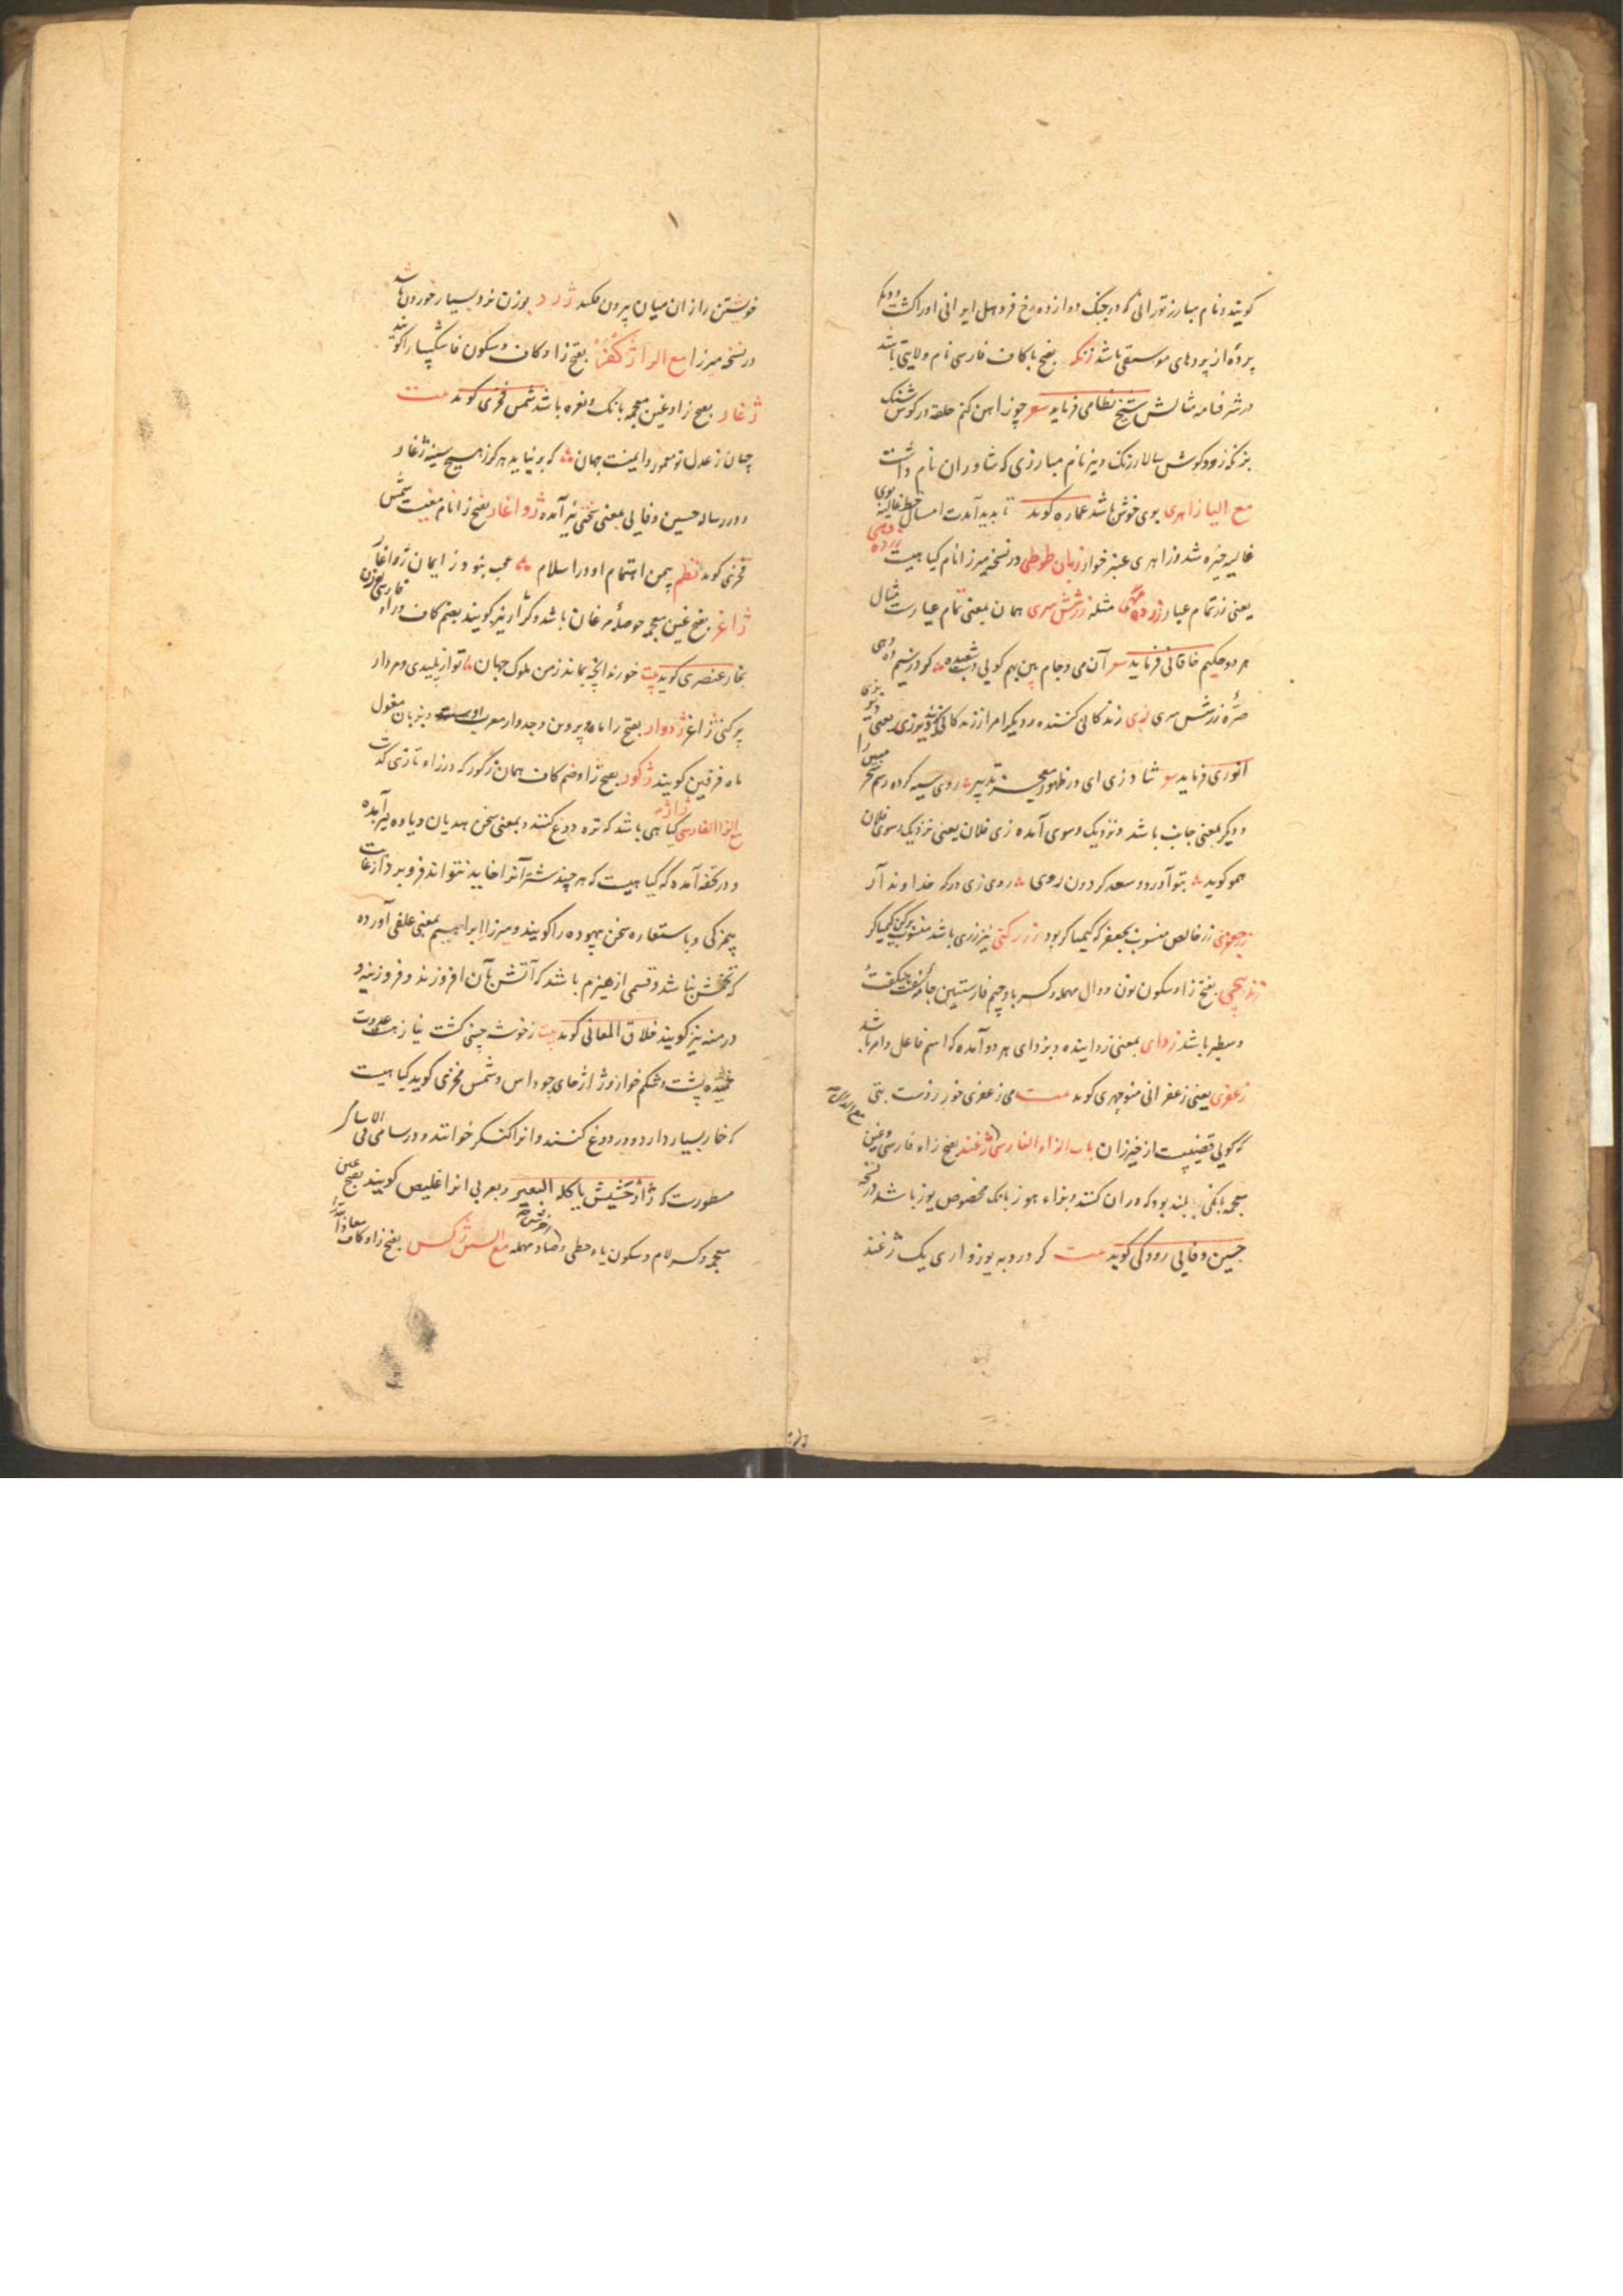 کویند و نام مبارز تورانی که در جنک دوازده رخ فروهل ایرانی او را کشت و دیکر
پرده از پردهای موسیقی باشد زنکه بفتح با کاف فارسی نام ولایتی باشد
در شرفنامه مثالش شیخ نظامی فرماید شعر چو زاهن کنم حلقه در کوش سنک
کوش سالار زنک و نیز نام مبارزی که شاوران نام داشت
مع الیا زاهری بوی خوش باشد عماره کوید پدید آمدت امسال خط غالیه بوی
غالیه خیره شد و زاهری عنبر خوار زبان طوطی در نسخه میرزا نام کیاهیست
یعنی زر تمام عیار زر ده دهی مثله زر شش سری همان بمعنی تمام عیارست مثال
هر دو حکیم خاقانی فرماید شعر آن می و جام بین بهم کویی دست شعبده کرد ز سیم ده دهی
صره زر شش سری زی زندکانی کننده و دیکر امر از زندکانی یعنی
انوری فرماید شعر شاد زی ای در ظهور معجز تدبیر روی سیه کرده رسم سحر مبین را
و دیکر بمعنی جانب باشد و نزدیک و سوی آمده زی فلان یعنی نزدیک و سوی فلان
همو کوید بتو آورد و سعد کردون روی روی زی درکه خداوند آر
زر جعفری زر خالص منسوب بجعفر که کیمیاکر بود زر رکنی نیز زری باشد منسوب برکن کیمیاکر
زندپیچی بفتح زا و سکون نون و دال مهمله و کسر با و جیم فارستین جامه سفت
و سطبر باشد زدای بمعنی زداینده و بزدای هر دو آمده که اسم فاعل و امر باشد
زعفری یعنی زعفرانی منوچهری کوید بیت می زعفری خور ز دست بتی
که کویی قضیبیست از خیزران باب الزاء الفارسی ژغند بفتح زاء فارسی و غین
معجمه بانکی بلند بود که دران کنند و بزاء هوز بانک مخصوص یوز باشد در نسخه
حسین وفایی رودکی کوید بیت کرد روبه یوزواری یک ژغند
خویشتن را زان میان بیرون فکند ژرد بوزن نرد بسیار خوردن باشد
در نسخه میرزا مع الرا ژکفر بفتح زا و کاف و سکون فا شکیبا را کویند
ژغار بفتح زا و غین معجمه بانک و نعره باشد شمس فخری کوید بیت
چنان ز عدل تو معمور و ایمنست جهان که بر نیاید هرکز ز هیچ سینه ژغار
و در رساله حسین وفایی بمعنی سختی نیز آمده ژواغار بفتح زا نام مغیست شمس
فخری کوید نظم بیمن اهتمام او در اسلام عجب بنود ز ایمان ژواغار
ژاغر بفتح غین معجمه حوصله مرغان باشد و کژار نیز کویند بضم کاف فارسی
بخار عنصری کوید بیت خورند انچه بماند ز من ملوک جهان تو از پلیدی و مردار
پر کنی ژاغر ژدوار بفتح زا ماه پروین و جدوار معرب اوست و بزبان مغول
ماه فرفین کویند ژکور بفتح زا و ضم کاف همان زکور که در زاء تازی کذشت
مع الزا الفارسی ژاژ کیاهی باشد که تره دوغ کنند و بمعنی سخن هذیان و یاوه نیز آمده
و در تحفه آمده که کیاهیست که هر چند شتر آنرا خاید نتواند فرو برد از غایت
بیمزکی و باستعاره سخن بیهوده را کویند و میرزا ابراهیم بمعنی علفی آورده
که تخمش نباشد و قسمی از هیزم باشد که آتش بآن افروزند و فروزینه و
درمنه نیز کویند خلاق المعانی کوید بیت ز خوشه چینی کشت نیاز
خمیده پشت و شکم خوار و ژاژخای چو داس و شمس فخری کوید کیاهیست
که خار بسیار دارد و در دوغ کنند و انرا کنکر خوانند و در سامی فی الاسامی
مسطورست که ژاژ حشیش یاکله البعیر و بعربی انرا غلیص کویند بفتح غین
معجمه و کسر لام و سکون یاء حطی و صاد مهمله مع السین ژکس بفتح زا و کاف